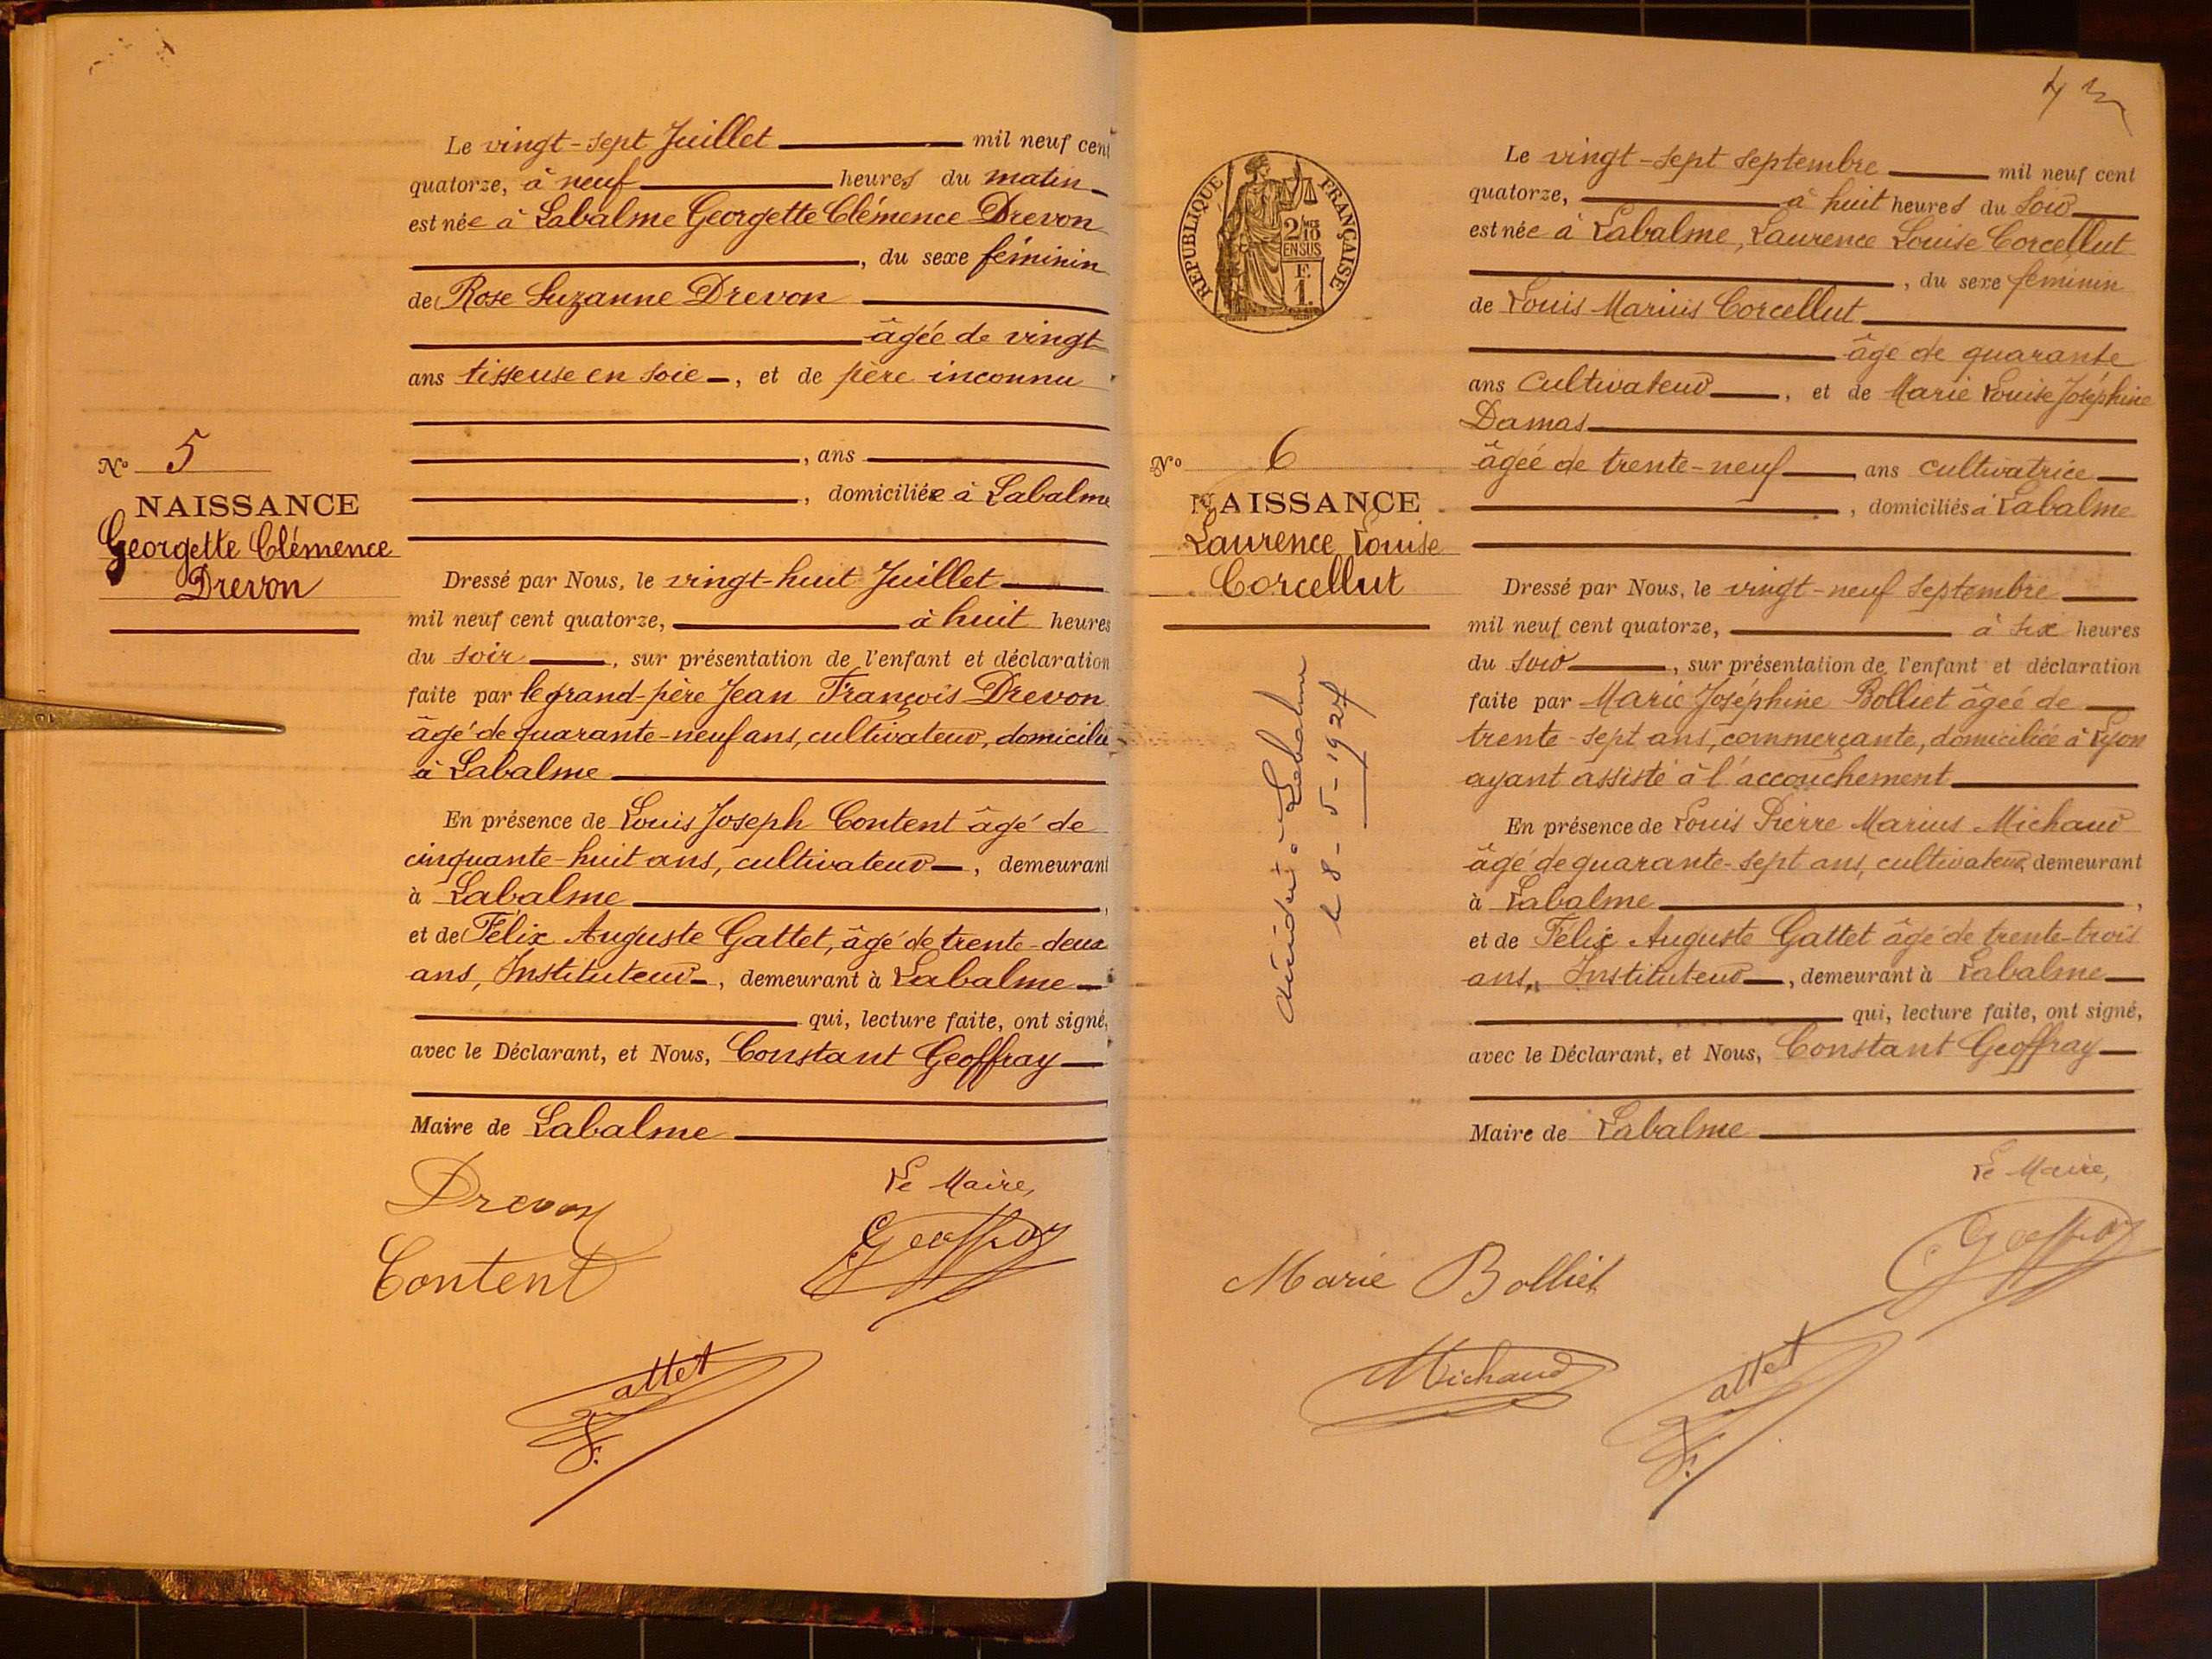 Le vingt-sept Juillet mil neuf cent
quatorze, à neuf heures du matin
est née à Labalme Georgette Clémence Drevon
, du sexe féminin
de Rose Suzanne Drevon
âgée de vingt
ans tisseuse en soie, et de père inconnu
, ans
, domiciliée à Labalme
N° 5
NAISSANCE
Georgette Clémence
Drevon
Dressé par Nous, le vingt-huit Juillet
mil neuf cent quatorze, à huit heures
du soir, sur présentation de l'enfant et déclaration
faite par le grand-père Jean François Drevon
âgé de quarante-neuf ans, cultivateur, domicilié
à Labalme
En présence de Louis Joseph Content âgé de
cinquante-huit ans, cultivateur, demeurant
à Labalme,
et de Félix Auguste Gattet, âgé de trente-deux
ans, Instituteur, demeurant à Labalme
qui, lecture faite, ont signé,
avec le Déclarant, et Nous, Constant Geoffray
Maire de Labalme
Le Maire,
Drevon
Geoffray
Content
Gattet
F.
43
REPUBLIQUE FRANÇAISE
2/10 EN SUS
F.
1.
Le vingt-sept septembre mil neuf cent
quatorze, à huit heures du soir
est née à Labalme, Laurence Louise Corcellut
, du sexe féminin
de Louis Marius Corcellut
âgé de quarante
ans Cultivateur, et de Marie Louise Joséphine
Damas
âgée de trente-neuf ans cultivatrice
, domiciliés à Labalme
N° 6
NAISSANCE
Laurence Louise
Corcellut
à Labalme
le 8-5-1924
Dressé par Nous, le vingt-neuf septembre
mil neuf cent quatorze, à six heures
du soir, sur présentation de l'enfant et déclaration
faite par Marie Joséphine Bolliet âgée de
trente-sept ans, commerçante, domiciliée à Lyon
ayant assisté à l'accouchement
En présence de Louis Pierre Marius Michaud
âgé de quarante-sept ans, cultivateur, demeurant
à Labalme,
et de Félix Auguste Gattet âgé de trente-trois
ans, Instituteur, demeurant à Labalme
qui, lecture faite, ont signé,
avec le Déclarant, et Nous, Constant Geoffray
Maire de Labalme
Le Maire,
Geoffray
Marie Bolliet
Michaud
Gattet
F.